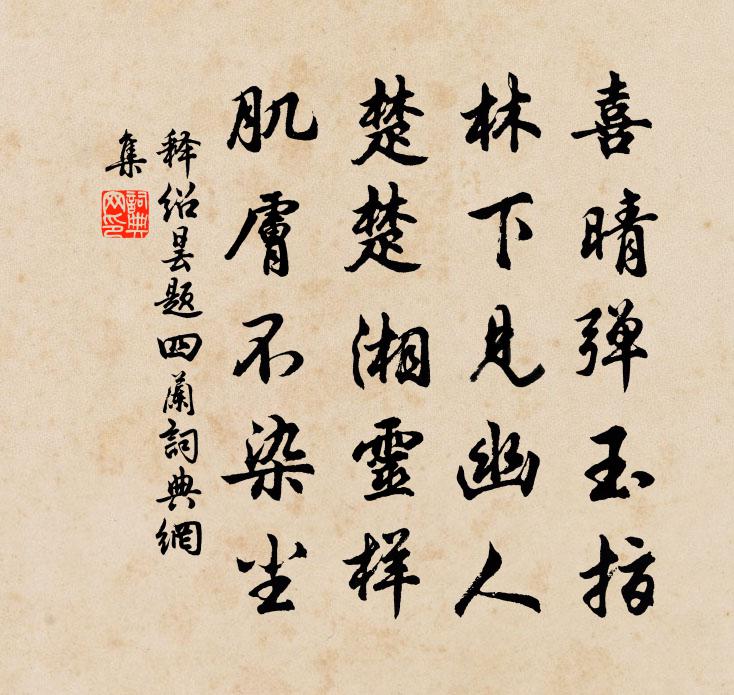 喜晴弹玉指
林下见幽人
楚楚湘靈样
肌膚不染尘
释绍昙题四蘭詞典網
集
詞典
网印